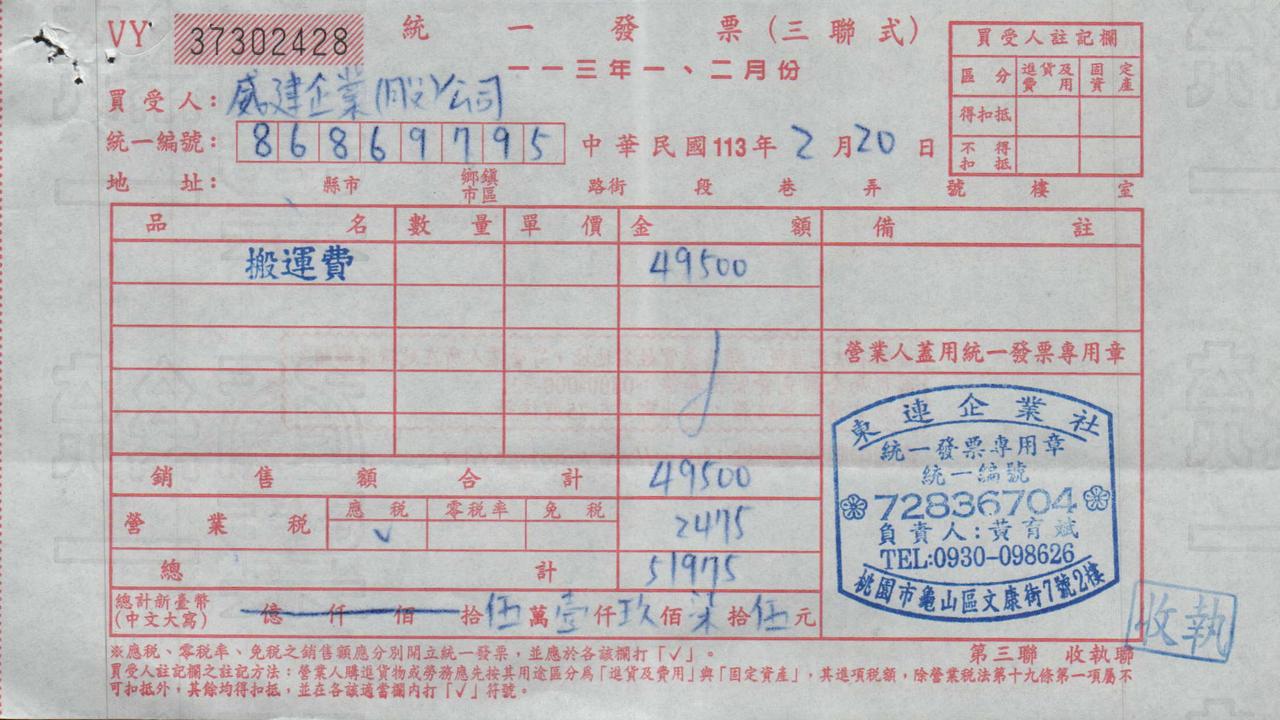 VY 37302428 統一發票(三聯式)
一一三年一、二月份
買受人註記欄
區分 進貨及費用 固定資產
得扣抵
不得扣抵
買受人: 威建企業(股)公司
統一編號: 86869795 中華民國113年2月20日
地址: 縣市 鄉鎮市區 路街 段 巷 弄 號 樓 室
品名 數量 單價 金額 備註
搬運費 49500
營業人蓋用統一發票專用章
銷售額合計 49500
營業稅 應稅 零稅率 免稅 2475
✓
總計 51975
總計新臺幣(中文大寫) 億仟佰拾伍萬壹仟玖佰柒拾伍元
東連企業社
統一發票專用章
統一編號
72836704
負責人:黃育斌
TEL:0930-098626
桃園市龜山區文康街7號2樓
※應稅、零稅率、免稅之銷售額應分別開立統一發票,並應於各該欄打「✓」。
第三聯 收執聯
收執
買受人註記欄之註記方法:營業人購進貨物或勞務應先按其用途區分為「進貨及費用」與「固定資產」,其進項稅額,除營業稅法第十九條第一項屬不
可扣抵外,其餘均得扣抵,並在各該適當欄內打「✓」符號。